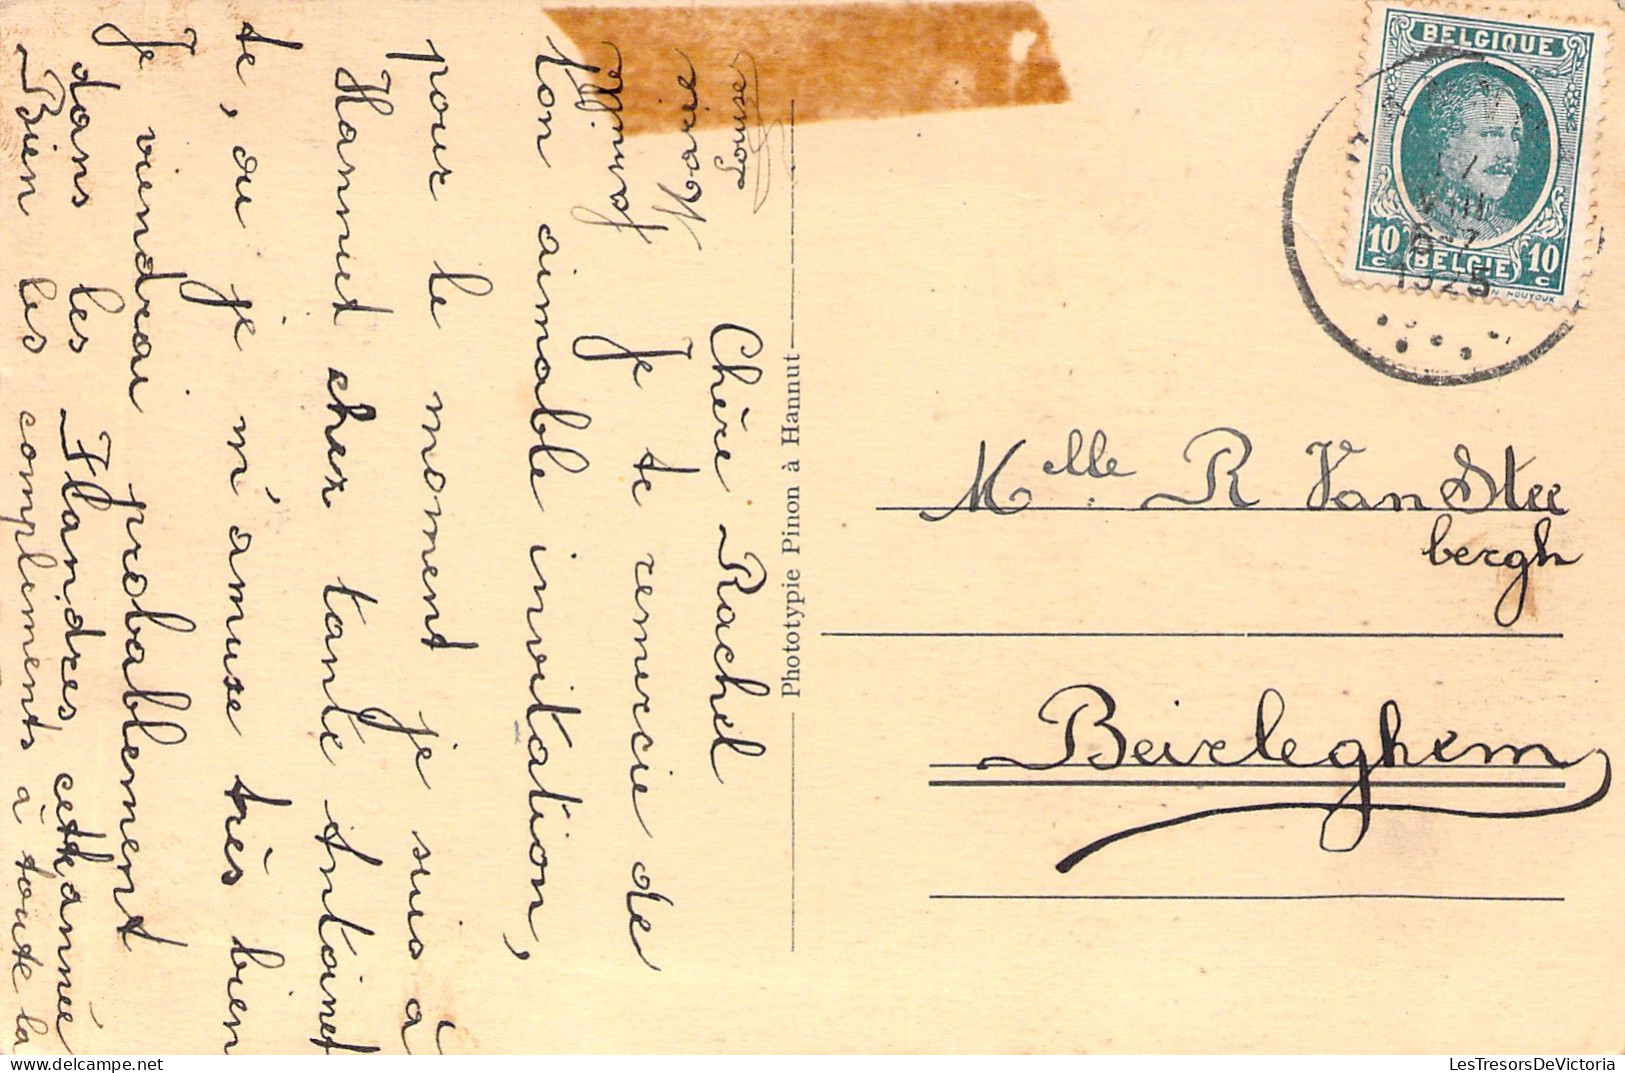 Chère Rachel
Je te remercie de
ton aimable invitation,
pour le moment je suis à
Hannut chez tante Antoinet
te, où je m'amuse très bien
Je viendrai probablement
dans les Flandres, cette année
Bien les compliments à toute la
famille
Marie
Louise
Phototypie Pinon à Hannut
BELGIQUE
10 c BELGIË 10 c
VIII
1925
Melle R Van Stee
bergh
Beirleghem
LesTresorsDeVictoria